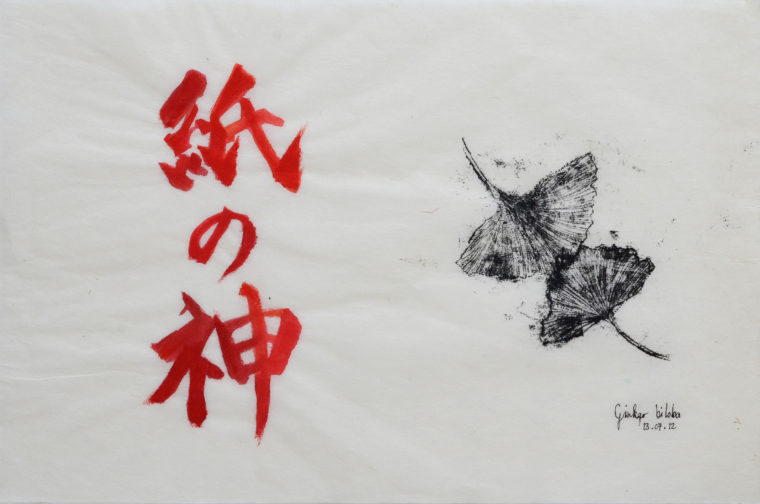 紙の神
Ginkgo biloba
13.07.12